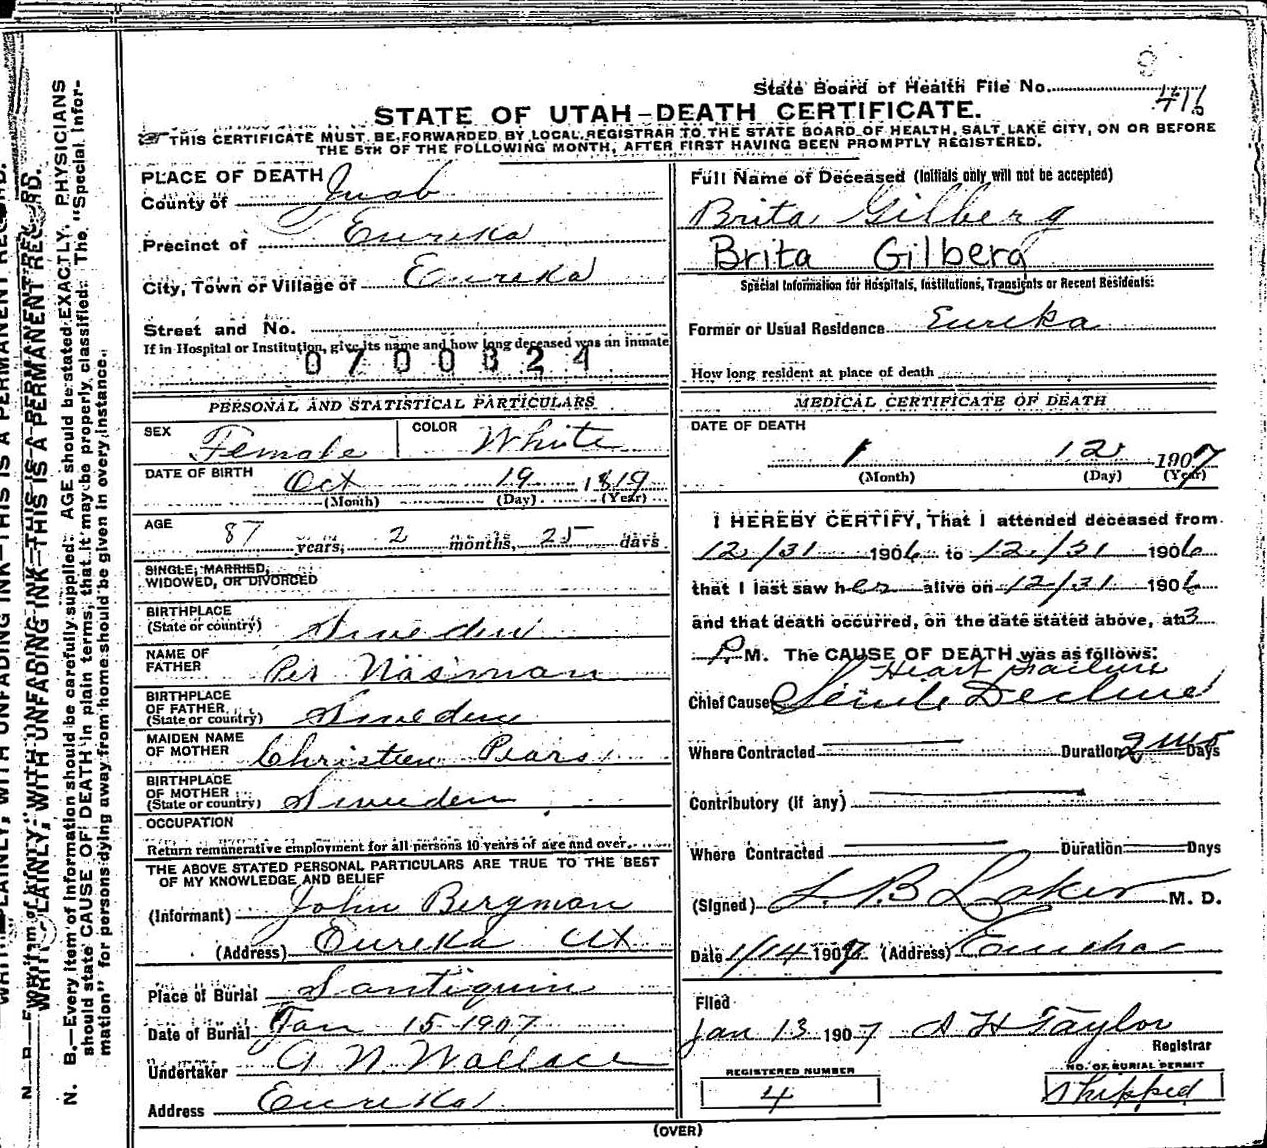 State Board of Health File No. 416
STATE OF UTAH-DEATH CERTIFICATE.
THIS CERTIFICATE MUST BE FORWARDED BY LOCAL REGISTRAR TO THE STATE BOARD OF HEALTH, SALT LAKE CITY, ON OR BEFORE
THE 5TH OF THE FOLLOWING MONTH, AFTER FIRST HAVING BEEN PROMPTLY REGISTERED.
PLACE OF DEATH
County of Juab
Precinct of Eureka
City, Town or Village of Eureka
Street and No.
If in Hospital or Institution, give its name and how long deceased was an inmate
0700324
PERSONAL AND STATISTICAL PARTICULARS
SEX Female COLOR White
DATE OF BIRTH Oct 19 1819
(Month) (Day) (Year)
AGE 87 years, 2 months, 25 days
SINGLE, MARRIED,
WIDOWED, OR DIVORCED
BIRTHPLACE
(State or country) Sweden
NAME OF
FATHER Per Näsman
BIRTHPLACE
OF FATHER
(State or country) Sweden
MAIDEN NAME
OF MOTHER Christien Pears
BIRTHPLACE
OF MOTHER
(State or country) Sweden
OCCUPATION
Return remunerative employment for all persons 10 years of age and over.
THE ABOVE STATED PERSONAL PARTICULARS ARE TRUE TO THE BEST
OF MY KNOWLEDGE AND BELIEF
(Informant) John Bergman
(Address) Eureka Ut
Place of Burial Santiquin
Date of Burial Jan 15 1907
Undertaker A N Wallace
Address Eureka
Full Name of Deceased (Initials only will not be accepted)
Brita Gilberg
Brita Gilberg
Special Information for Hospitals, Institutions, Transients or Recent Residents:
Former or Usual Residence Eureka
How long resident at place of death
MEDICAL CERTIFICATE OF DEATH
DATE OF DEATH
1 12 1907
(Month) (Day) (Year)
I HEREBY CERTIFY, That I attended deceased from
12/31 1906 to 12/31 1906
that I last saw her alive on 12/31 1906
and that death occurred, on the date stated above, at 3
P. M. The CAUSE OF DEATH was as follows:
Heart failure
Chief Cause Senile Decline
Where Contracted Duration 2 mos Days
Contributory (if any)
Where Contracted Duration Days
(Signed) M. D.
Date 1/14 1907 (Address) Eureka
Filed
Jan 13 1907 A H Taylor
Registrar
REGISTERED NUMBER
4
NO. OF BURIAL PERMIT
Shipped
(OVER)
N. B.—Every item of information should be carefully supplied. AGE should be stated EXACTLY. PHYSICIANS
should state CAUSE OF DEATH in plain terms, that it may be properly classified. The "Special Infor-
mation" for persons dying away from home should be given in every instance.
WRITE PLAINLY, WITH UNFADING INK—THIS IS A PERMANENT RECORD.